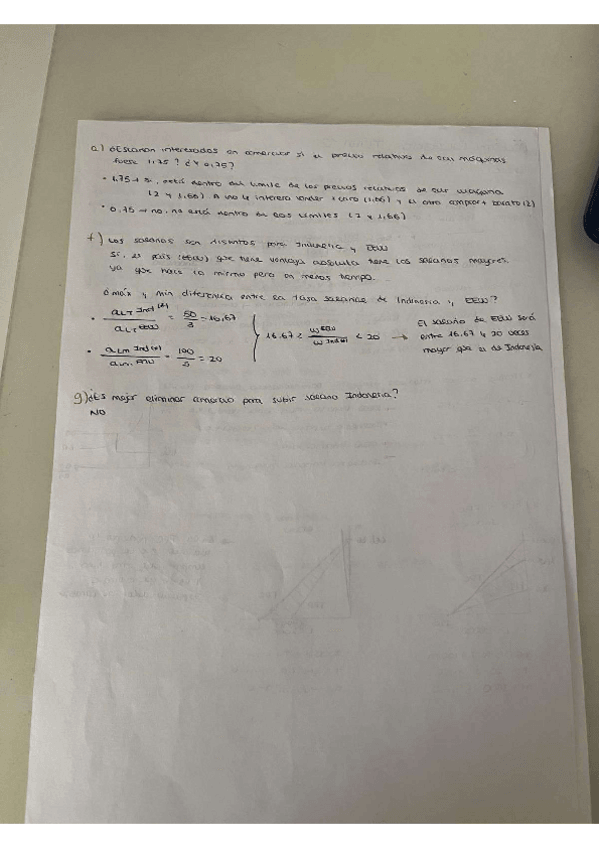 e) ¿Estarían interesados en comerciar si el precio relativo de las máquinas
fuese 1.75? ¿Y 0,75?
• 1.75 → si, está dentro del límite de los precios relativos de our máquina
(2 y 1,66) A uno le interesa vender + caro (1,66) y el otro comprar + barato (2)
• 0.75 → no, no está dentro de los límites (2 y 1,66)
f) Los salarios son distintos para Indonesia y EEUU
Sí, el país (EEUU) que tiene ventaja absoluta tiene los salarios mayores
ya que hace lo mismo pero en menos tiempo.
¿máx y min diferencia entre la tasa salarial de Indonesia y EEUU?
• aLT Ind(*) / aLT EEUU = 50/3 = 16,67
• aLM Ind(*) / aLM EEUU = 100/5 = 20
16.67 < wEEUU / wInd(*) < 20 →
El salario de EEUU será
entre 16.67 y 20 veces
mayor que el de Indonesia
g) ¿Es mejor eliminar comercio para subir salario Indonesia?
NO